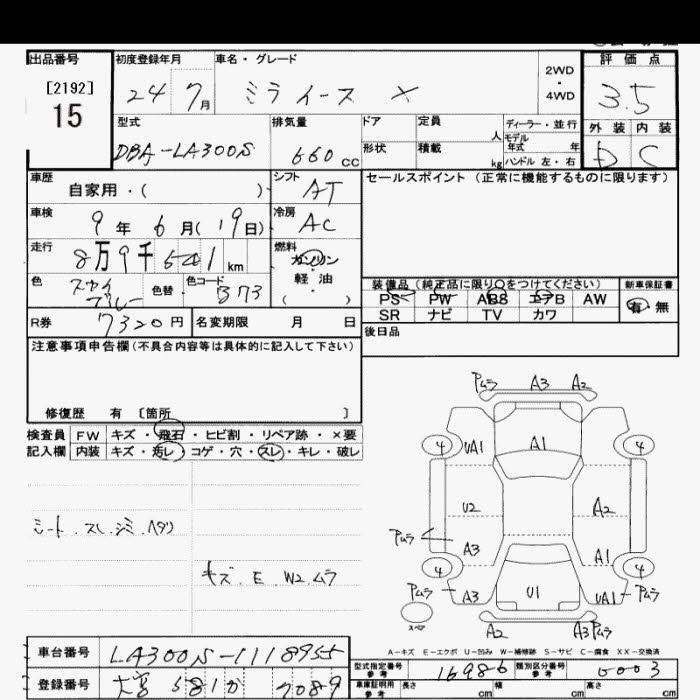 出品番号 初度登録年月 車名・グレード 2WD・4WD 評価点
[2192] 15 24 7月 ミライース X 3.5
型式 排気量 ドア 定員 人 ディーラー・並行 外装 内装
DBA-LA300S 660cc 形状 積載 kg モデル年式 年 ハンドル 左・右 D C
車歴 自家用・( ) シフト AT セールスポイント(正常に機能するものに限ります)
車検 9年 6月(19日) 冷房 AC
走行 8万9千 km 燃料 ガソリン・軽油 ( )
色 スカイブルー 色替 色コード B73 装備品(純正品に限り○をつけてください) 新車保証書
PS PW ABS エアB AW 有・無
SR ナビ TV カワ
R券 7320円 名変期限 月 日 後日品
注意事項申告欄(不具合内容等は具体的に記入して下さい)
修復歴 有 〔箇所 〕
検査員 FW キズ・飛石・ヒビ割・リペア跡・×要
記入欄 内装 キズ・汚レ・コゲ・穴・スレ・キレ・破レ
シート.スレ.シミ.ヘタリ
キズ.E.W2.ムラ
Pムラ A3 A2
4 UA1 A1 4
U2 A2
Pムラ A3 A1
4 4
Pムラ A3 U1 UA1 Pムラ
スペア A2 A3 Pムラ
A-キズ E-エクボ U-凹み W-補修跡 S-サビ C-腐食 XX-交換済
車台番号 LA300S-1118955 型式指定番号 参考 16986 類別区分番号 参考 0003
登録番号 大宮 581か 7089 車庫証明用 参考 長さ cm 幅 cm 高さ cm